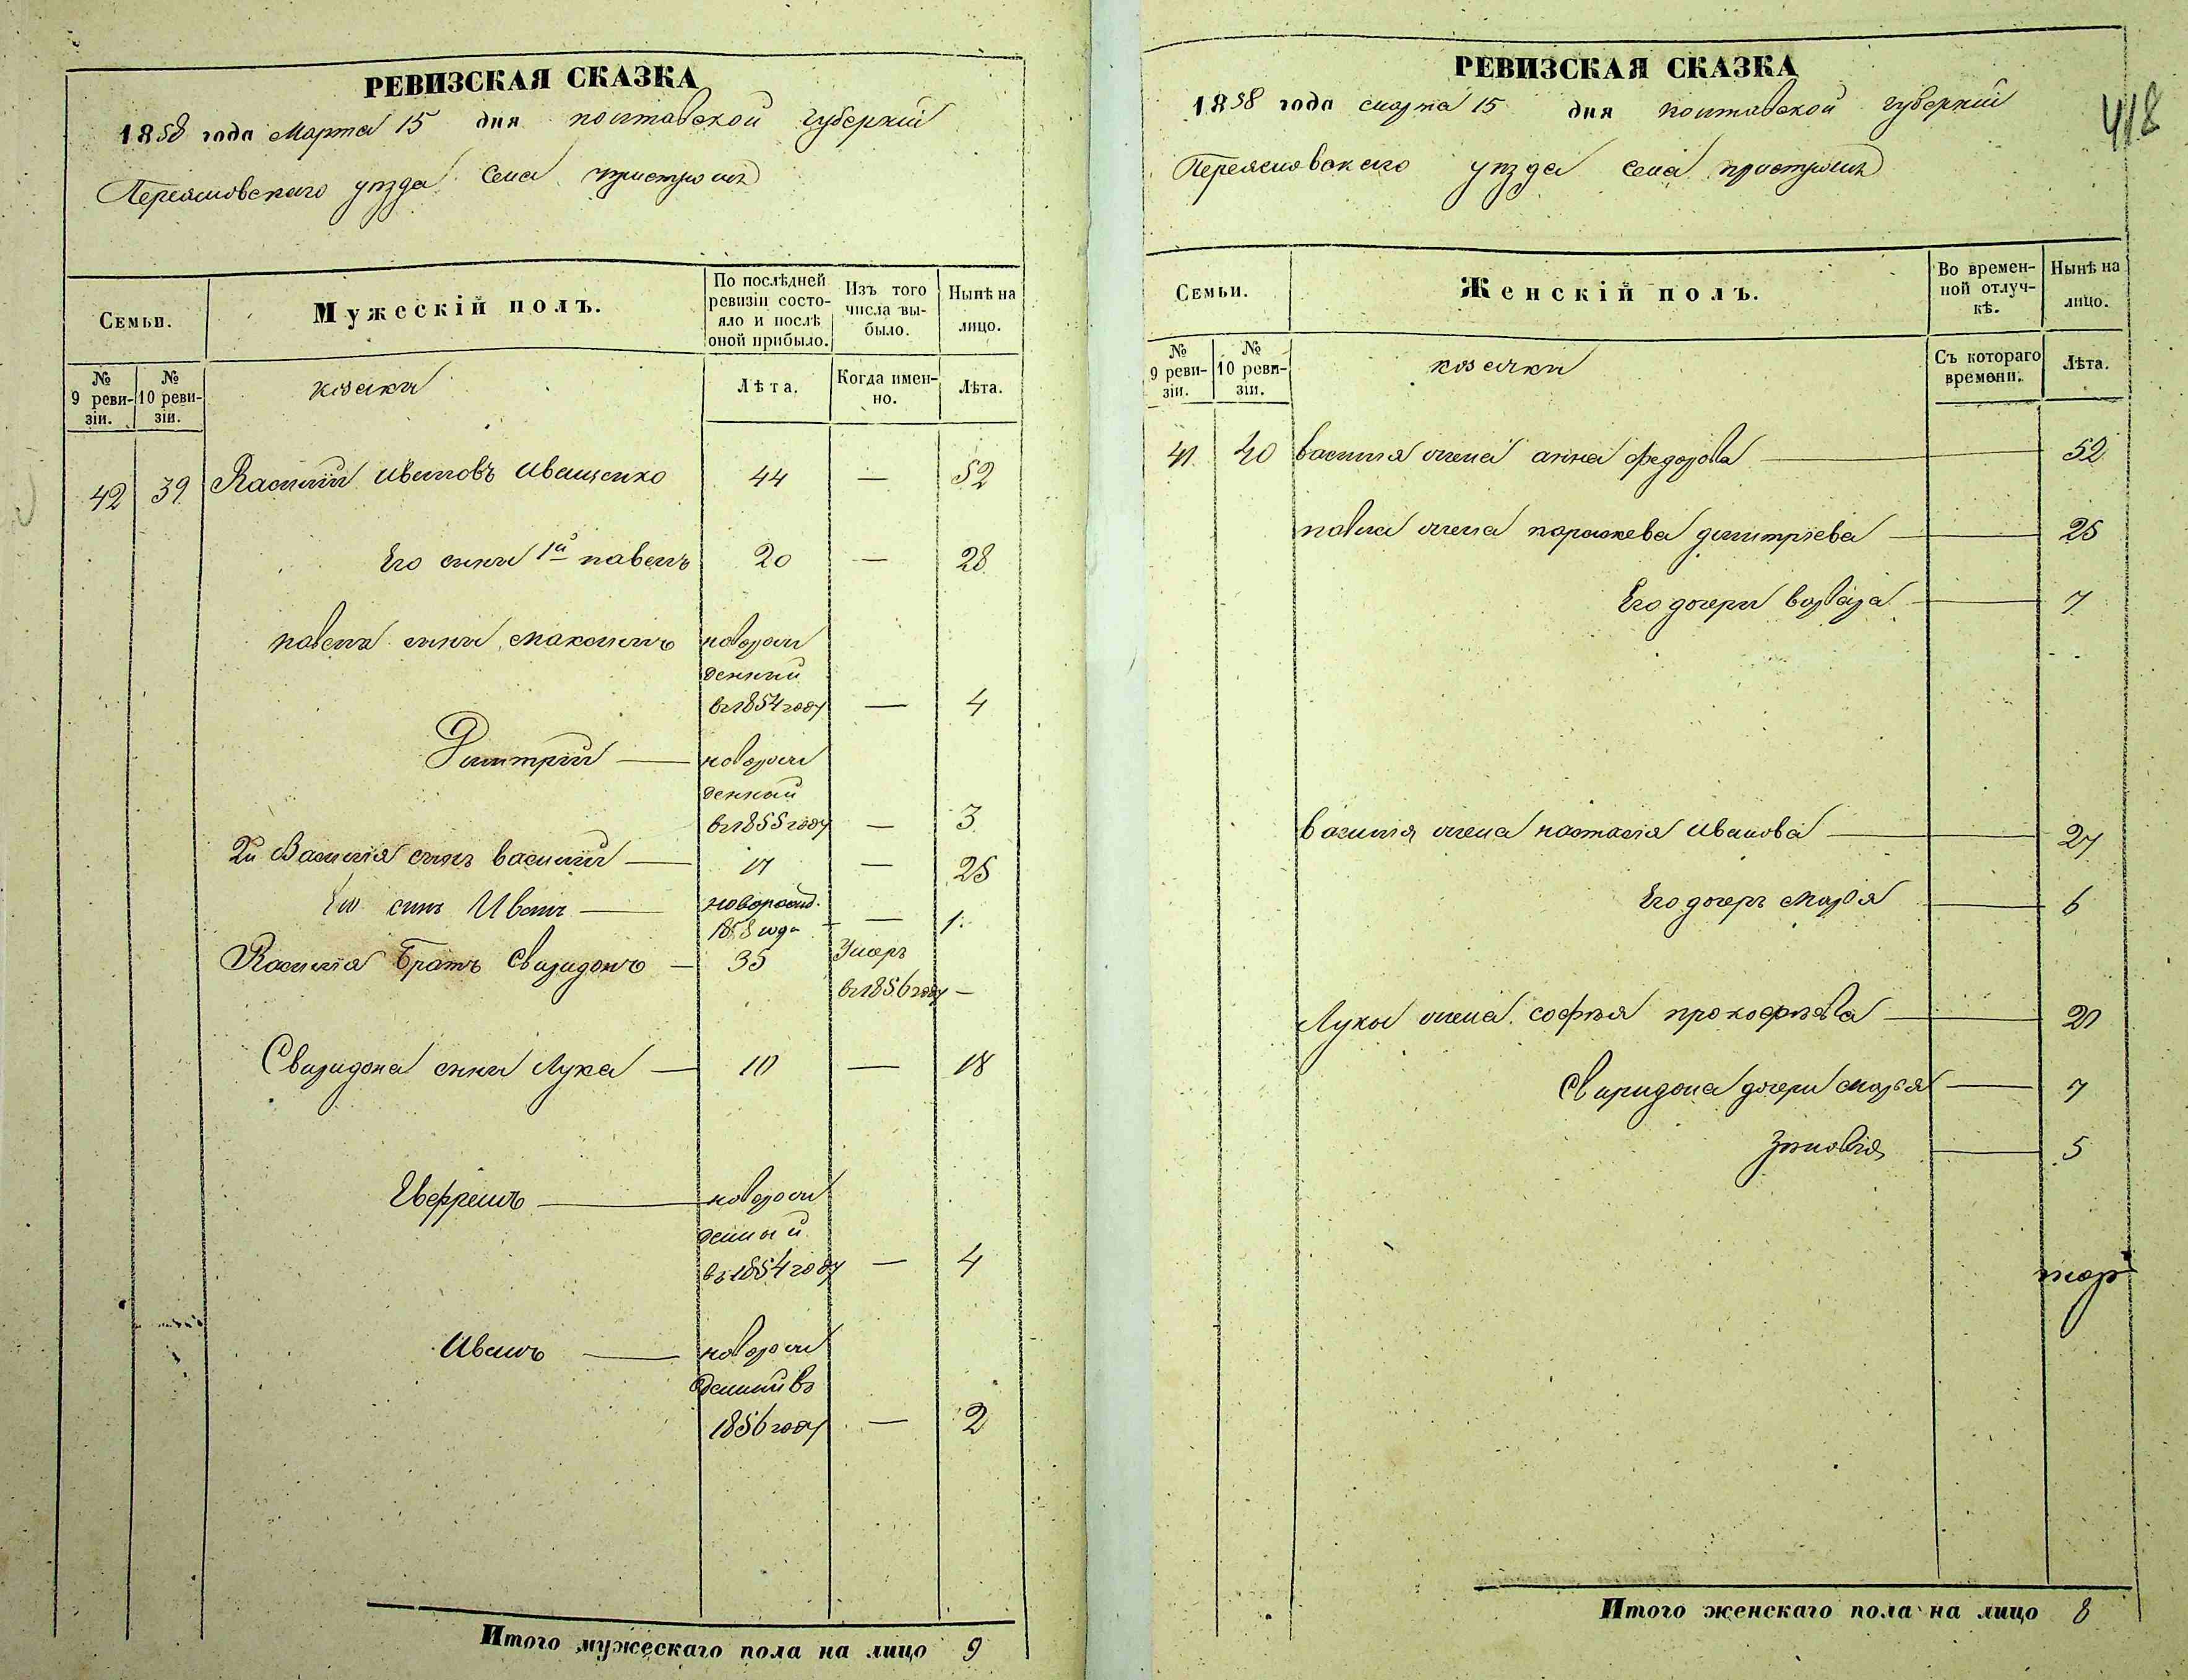 РЕВИЗСКАЯ СКАЗКА
1858 года Марта 15 дня полтавской губернии
Переясловского уезда села пристромъ
Семьи.
Мужескій полъ.
По послѣдней ревизіи состояло и послѣ оной прибыло.
Изъ того числа выбыло.
Нынѣ на лицо.
№ 9 ревизіи.
№ 10 ревизіи.
козаки
Лѣта.
Когда именно.
Лѣта.
42 39 Василий Ивановъ Иващенко 44 — 52
Его сины 1й павелъ 20 — 28
павела сины Максимъ новорож
денный
въ 1854 году — 4
Димитрий — новорож
денный
въ 1855 году — 3
2й Василія синъ василий — 17 — 25
Его синъ Иванъ — новорожд.
1858 года — 1.
Василия Братъ Свиридонъ — 35 Умеръ
въ 1856 году —
Свиридона сины Лука — 10 — 18
Евфремъ — новорож
денный
въ 1854 году — 4
Иванъ — новорож
денний въ
1856 году — 2
Итого мужескаго пола на лицо 9
РЕВИЗСКАЯ СКАЗКА
418
1858 года марта 15 дня полтавской губернии
Переясловскаго уезда села пристромъ
Семьи.
Женскій полъ.
Во временной отлучкѣ.
Нынѣ на лицо.
№ 9 ревизіи.
№ 10 ревизіи.
козачки
Съ котораго времени.
Лѣта.
41 40 василия жена анна федорова — 52
павла жена параскева димитріева — 25
Его дочери варвара — 7
василия жена настасія Иванова — 27
Его дочерь марья — 6
Луки жена софья прокофьева — 20
Свиридона дочери марья — 7
Зиновія — 5
Итого женскаго пола на лицо 8